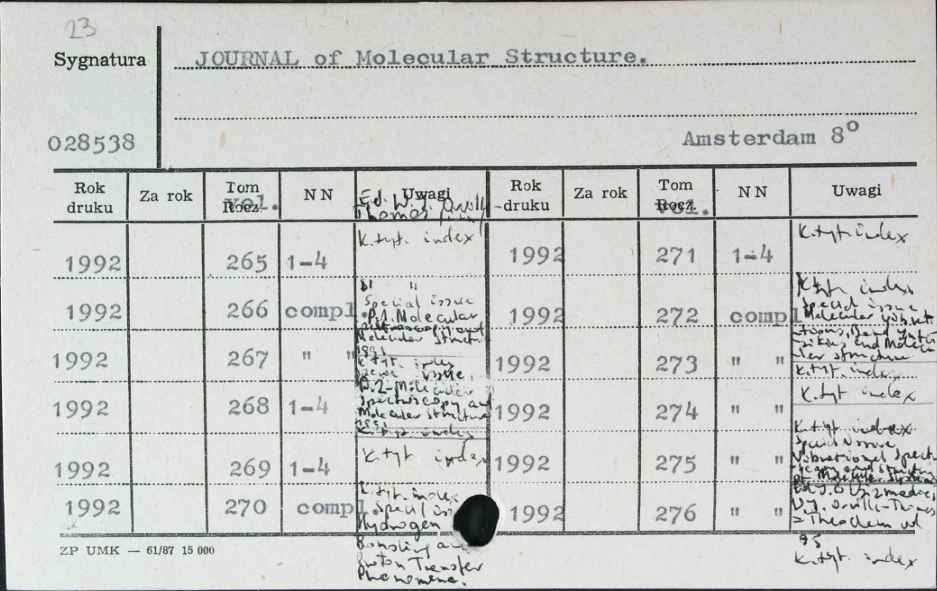 23
Sygnatura
JOURNAL of Molecular Structure.
028538
Amsterdam 8º
Rok druku Za rok Tom Rocz. vol. NN Uwagi Rok druku Za rok Tom Rocz. vol. NN Uwagi
Ed. W. J.
Thomas
1992 265 1-4 K.tyt. index 1992 271 1-4 K.tyt. index
1992 266 compl 1992 272 compl
" "
Special issue
P.1. Molecular
Spectroscopy and
Molecular Structure
1991
K.tyt. index
Special issue
Molecular
and Molecu
lar structure
K.tyt. index
1992 267 " " 1992 273 " "
K.tyt. index
issue
P.2-Molecular
Spectroscopy and
Molecular structure
1991
K.tyt. index
1992 268 1-4 1992 274 " " K.tyt index
1992 269 1-4 K.tyt index 1992 275 " "
K.tyt index
Special issue
Vibrational Spect
of Molecular Systems
1992 270 compl 1992 276 " "
K.tyt. index
Special
Hydrogen
Bonding and
Proton Transfer
Phenomena.
Orville-Thomas
= Theochem vol
95
K.tyt. index
ZP UMK — 61/87 15 000